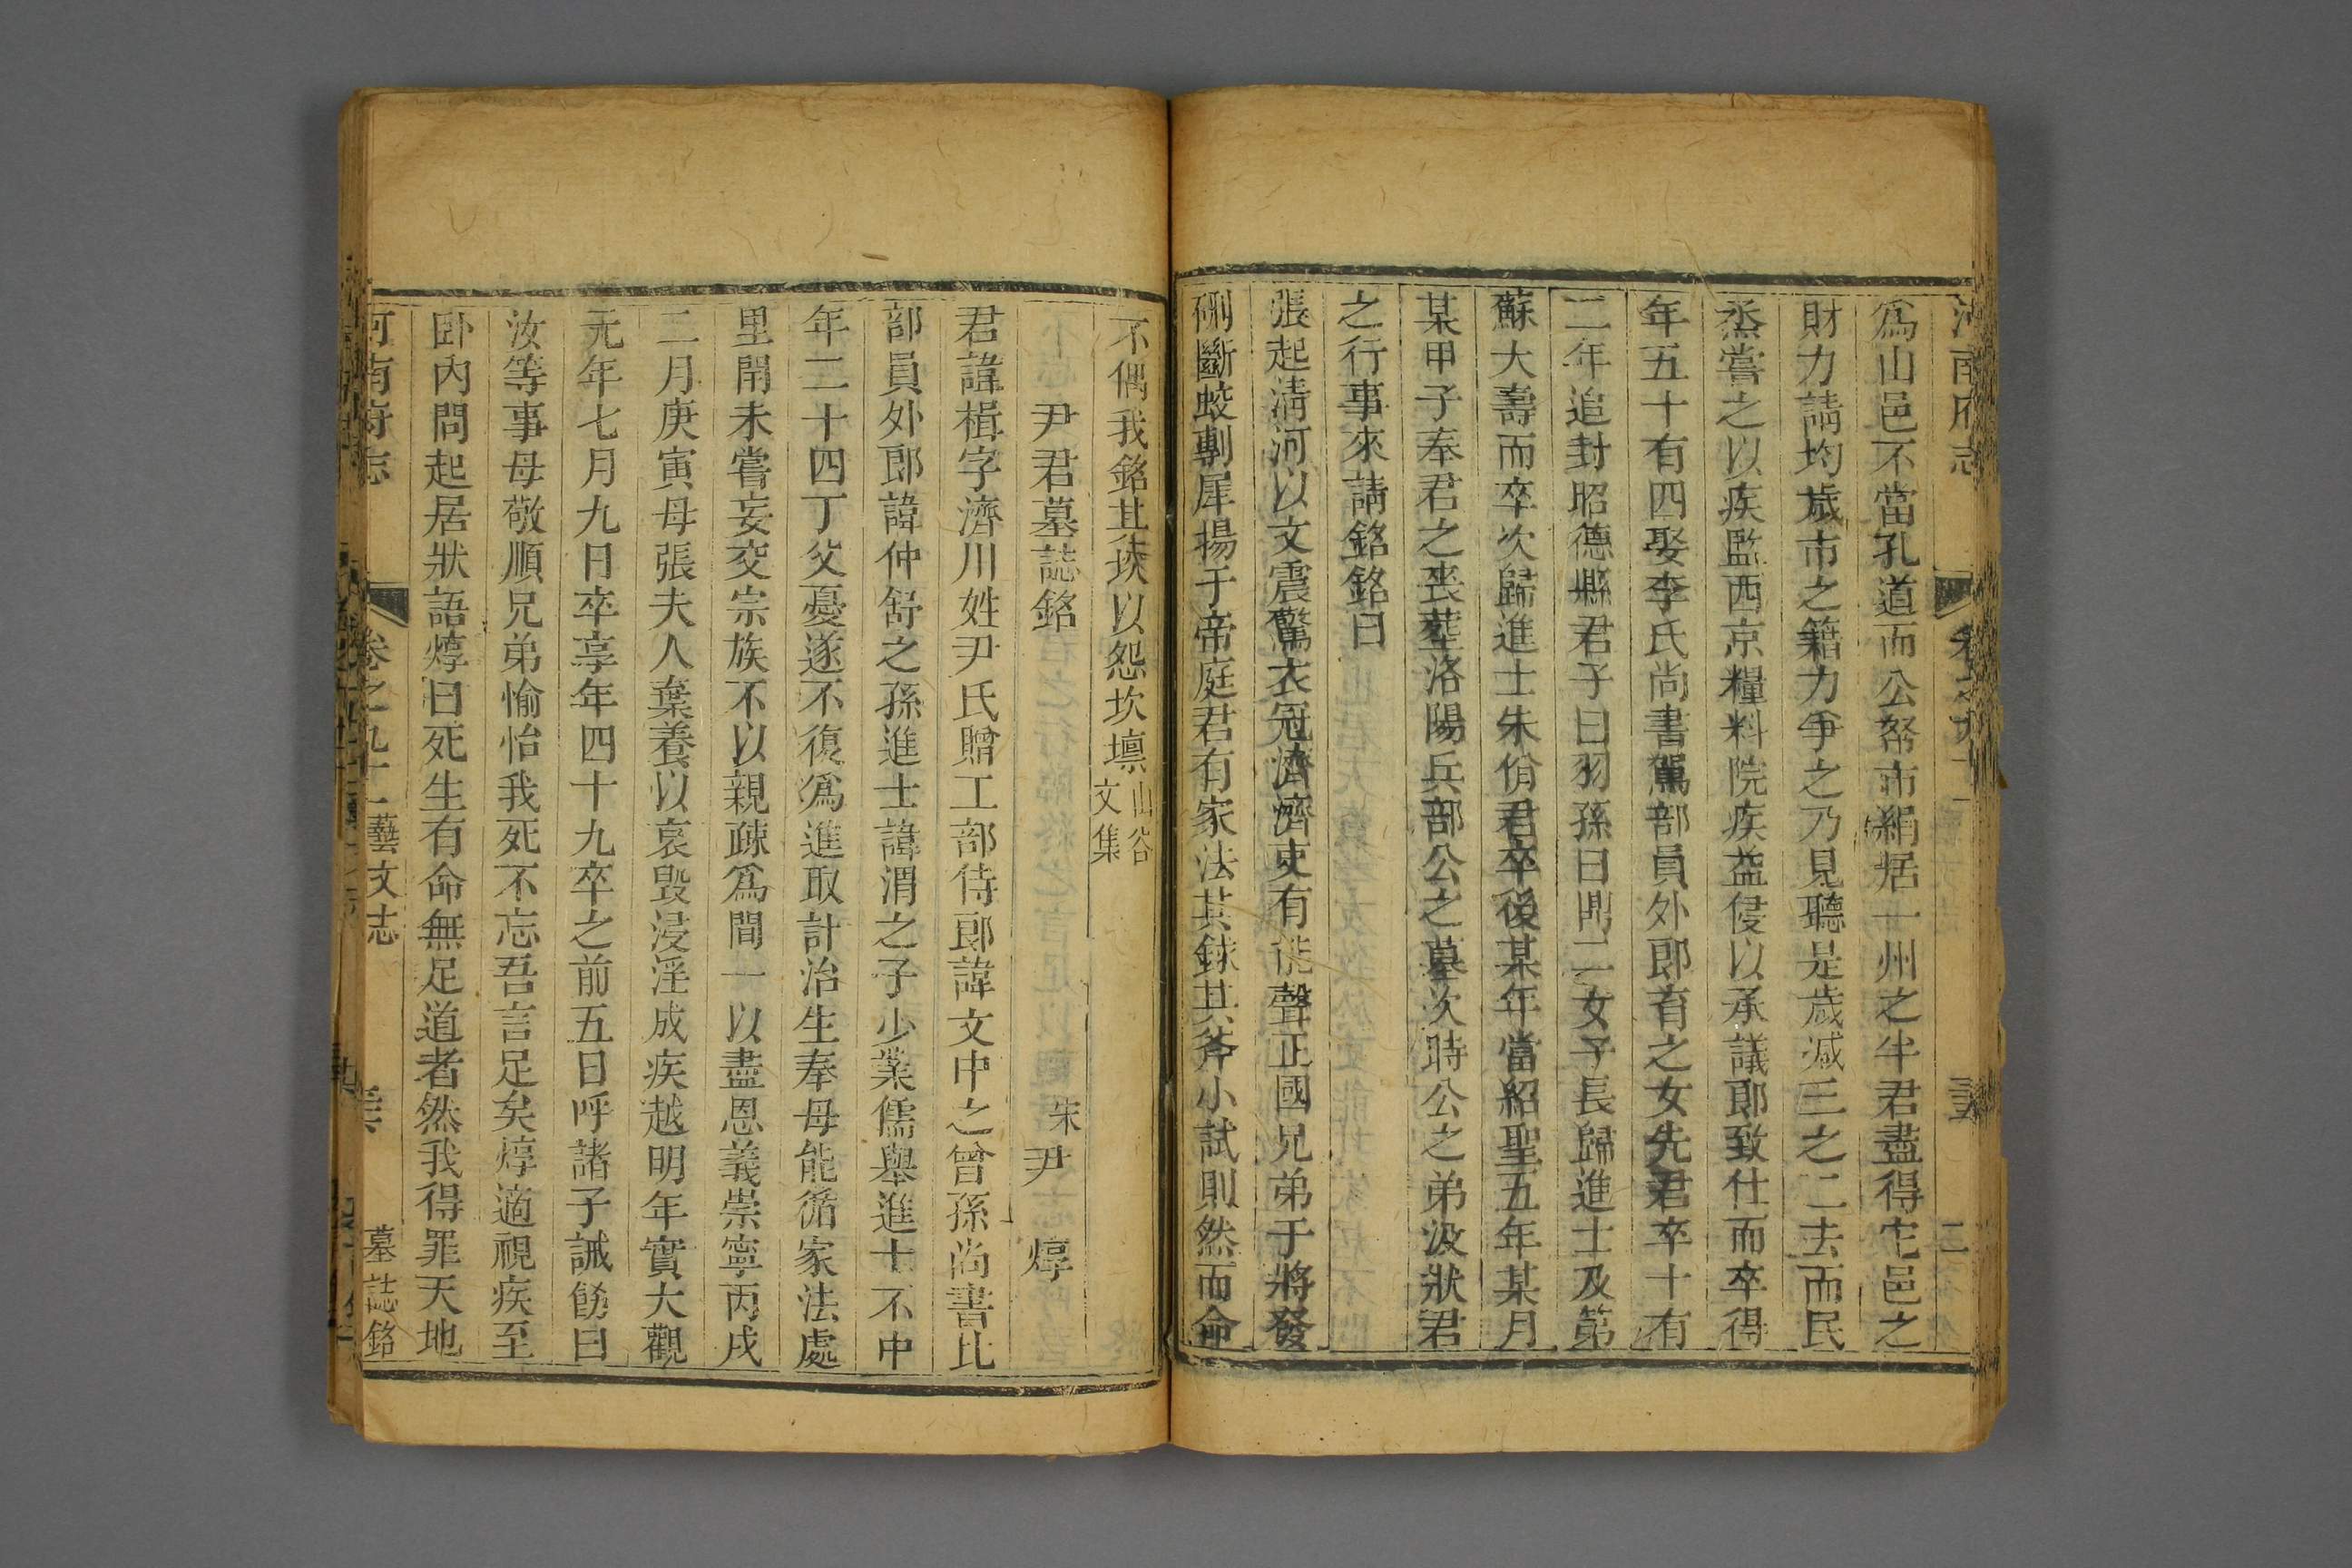 爲山邑不當孔道而公帑市絹居一州之半君盡得宅邑之
財力請均歳市之籍力爭之乃見聽是歳減三之二去而民
烝嘗之以疾監西京糧料院疾益侵以承議郎致仕而卒得
年五十有四娶李氏尚書駕部員外郎育之女先君卒十有
二年追封昭德縣君子曰羽孫曰鼎二女子長歸進士及第
蘇大壽而卒次歸進士朱佾君卒後某年當紹聖五年某月
某甲子奉君之喪葬洛陽兵部公之墓次時公之弟汲狀君
之行事來請銘銘曰
張起淸河以文震驚衣冠濟濟吏有能聲正國兄弟于將發
硎斷蛟剸犀揚于帝庭君有家法其銶其斧小試則然而命
不偶我銘其埃以怨坎壈山谷文集
尹君墓誌銘 宋尹焞
君諱楫字濟川姓尹氏贈工部侍郎諱文中之曾孫尚書比
部員外郎諱仲舒之孫進士諱渭之子少業儒舉進士不中
年二十四丁父憂遂不復爲進取計治生奉母能循家法處
里閈未嘗妄交宗族不以親疎爲間一以盡恩義崇寧丙戌
二月庚寅母張夫人棄養以哀毀浸淫成疾越明年實大觀
元年七月九日卒享年四十九卒之前五日呼諸子誡飭曰
汝等事母敬順兄弟愉怡我死不忘吾言足矣焞適視疾至
卧內問起居狀語焞曰死生有命無足道者然我得罪天地
河南府志 卷之九十二藝文志 墓誌銘